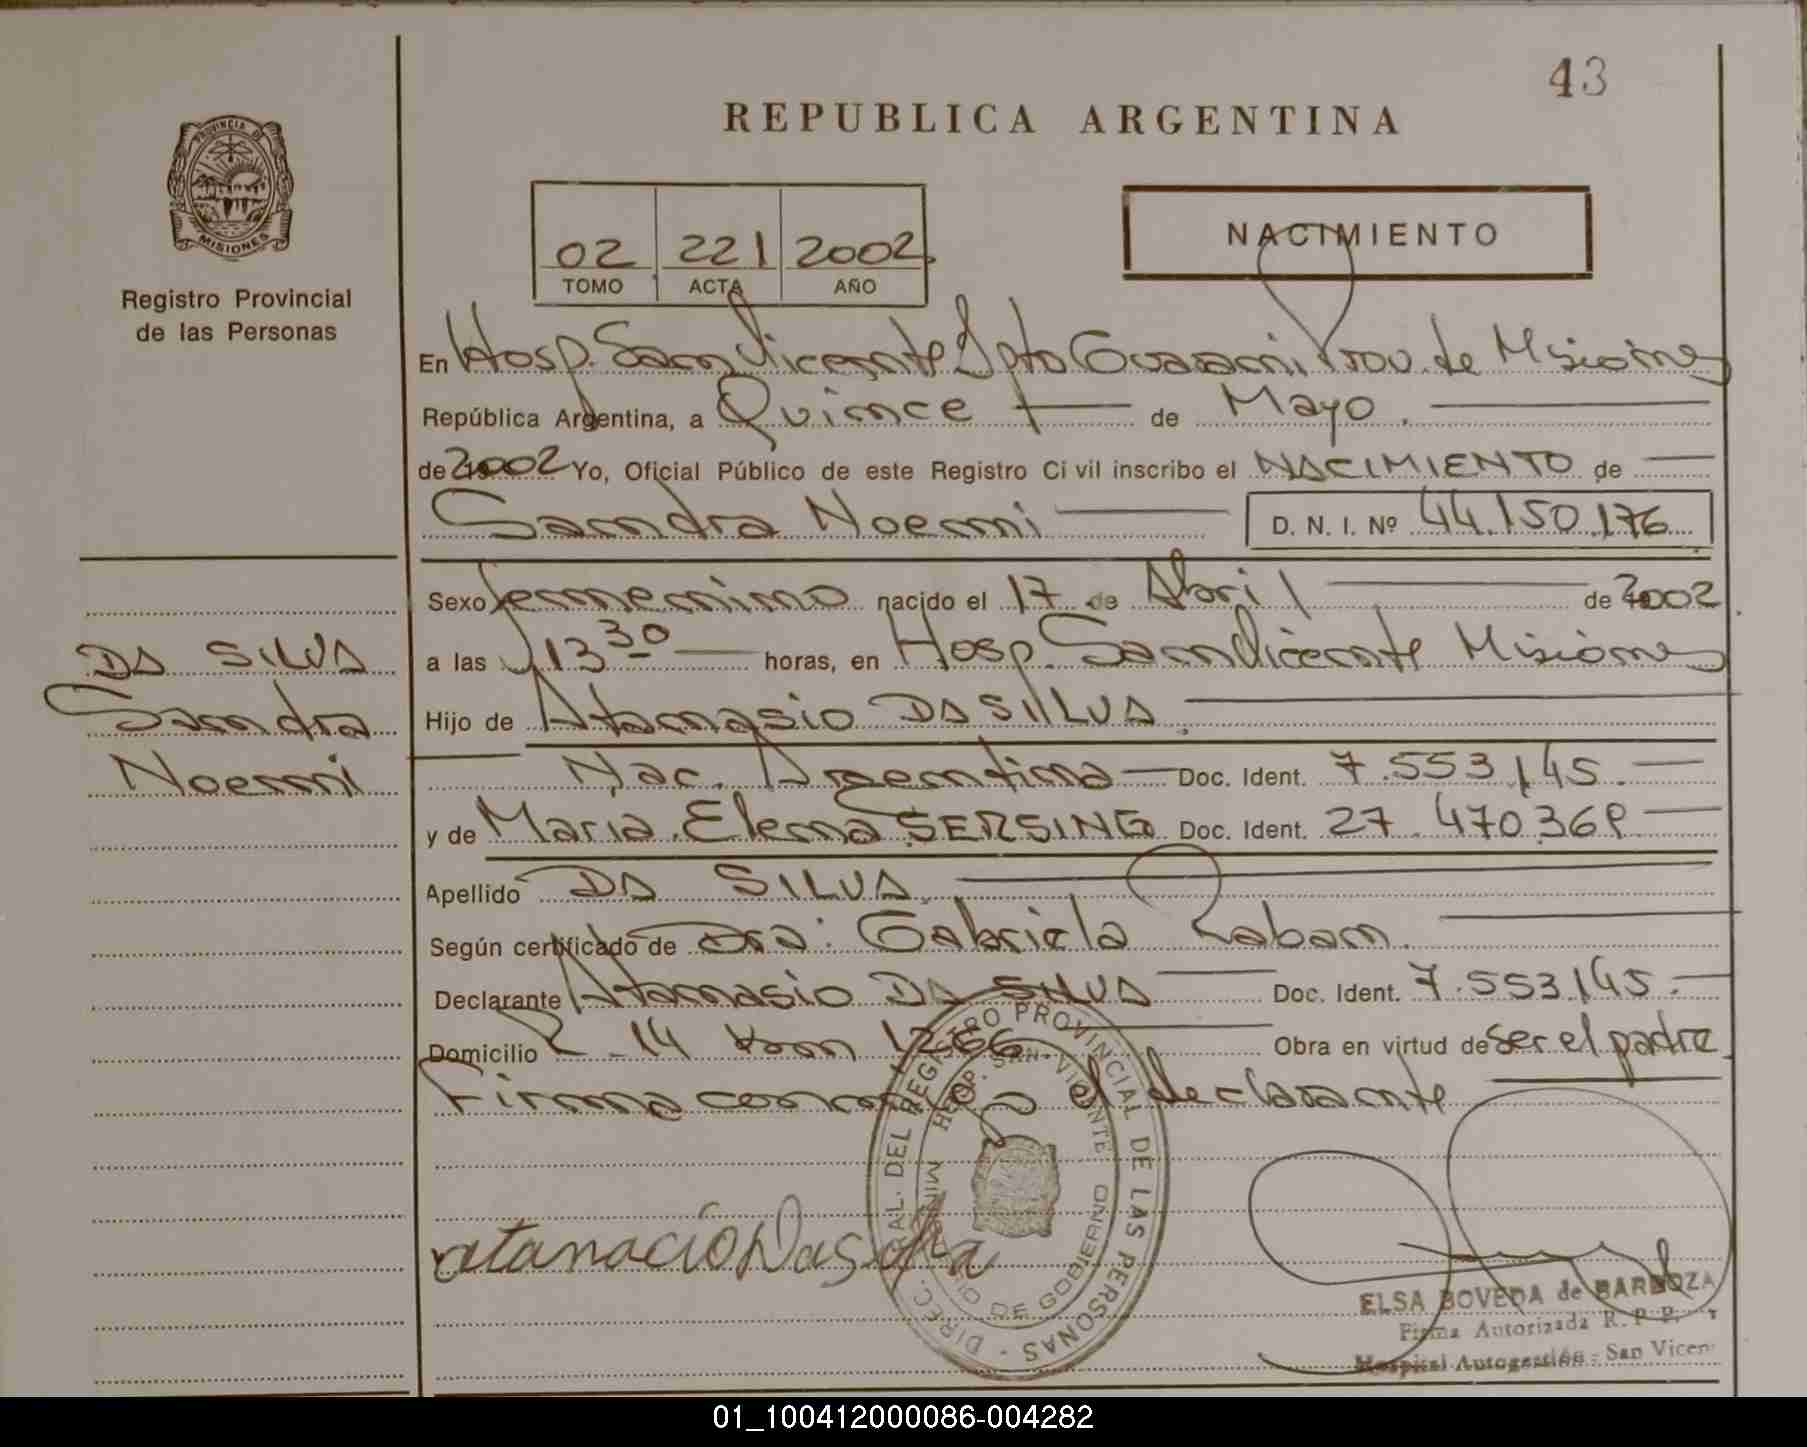 43
REPUBLICA ARGENTINA
PROVINCIA DE
MISIONES
Registro Provincial
de las Personas
02 221 2002
TOMO ACTA AÑO
NACIMIENTO
En Hosp. San Vicente Dpto Guarani Prov. de Misiones
República Argentina, a Quince de Mayo.
de 2002 Yo, Oficial Público de este Registro Civil inscribo el NACIMIENTO de
Sandra Noemi D. N. I. Nº 44.150.176
Sexo femenino nacido el 17 de Abril de 2002
a las 13 30 horas, en Hosp. San Vicente Misiones
Hijo de Atanasio DA SILVA
Nac. Argentina Doc. Ident. 7.553.145.
y de Maria Elena SERSING Doc. Ident. 27.470.368
Apellido DA SILVA
Según certificado de Dra: Gabriela Laban.
Declarante Atanasio DA SILVA Doc. Ident. 7.553.145.
Domicilio R. 14 Km 1266 Obra en virtud de ser el padre
Firma conmigo el declarante
DA SILVA
Sandra
Noemi
DIREC. GRAL. DEL REGISTRO PROVINCIAL DE LAS PERSONAS
HOSP. SAN VICENTE
MINISTERIO DE GOBIERNO
atanacio Da silva
ELSA BOVEDA de BARBOZA
Firma Autorizada R. P. P.
Hospital Autogestión - San Vicen
01_100412000086-004282